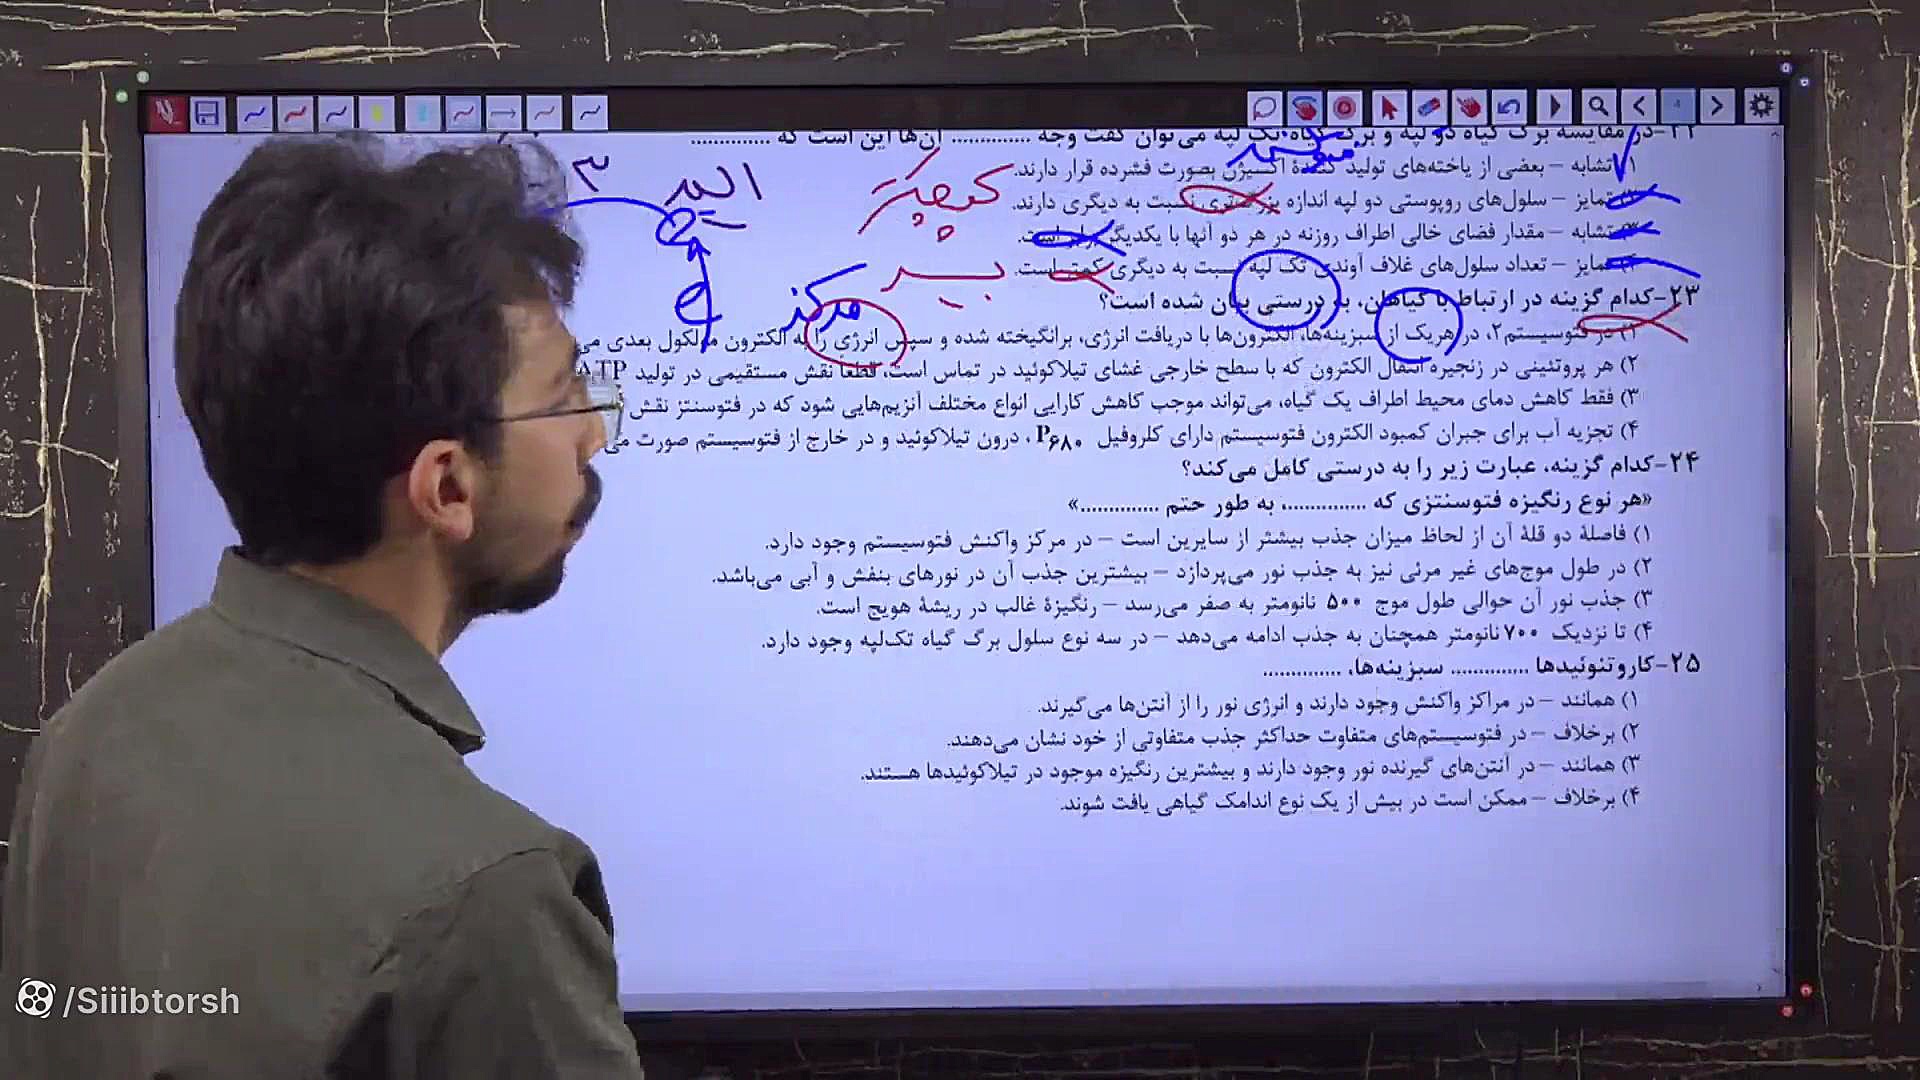 ۲۲-در مقایسه برگ گیاه دو لپه و برگ گیاه تک لپه می‌توان گفت وجه .............. آن‌ها این است که ..............
۱) تشابه – بعضی از یاخته‌های تولید کنندهٔ اکسیژن بصورت فشرده قرار دارند.
تمایز – سلول‌های روپوستی دو لپه اندازه بزرگ‌تری نسبت به دیگری دارند.
۳) تشابه – مقدار فضای خالی اطراف روزنه در هر دو آنها با یکدیگر برابر است.
تمایز – تعداد سلول‌های غلاف آوندی تک لپه نسبت به دیگری کمتر است.
کوچکتر
بیشتر
مرکز
۳
e
e
۲۳-کدام گزینه در ارتباط با گیاهان، به درستی بیان شده است؟
۱) در فتوسیستم۲، در هریک از سبزینه‌ها، الکترون‌ها با دریافت انرژی، برانگیخته شده و سپس انرژی را به الکترون مولکول بعدی می
۲) هر پروتئینی در زنجیره انتقال الکترون که با سطح خارجی غشای تیلاکوئید در تماس است، قطعاً نقش مستقیمی در تولید ATP
۳) فقط کاهش دمای محیط اطراف یک گیاه، می‌تواند موجب کاهش کارایی انواع مختلف آنزیم‌هایی شود که در فتوسنتز نقش
۴) تجزیه آب برای جبران کمبود الکترون فتوسیستم دارای کلروفیل P۶۸۰، درون تیلاکوئید و در خارج از فتوسیستم صورت می
۲۴-کدام گزینه، عبارت زیر را به درستی کامل می‌کند؟
«هر نوع رنگیزه فتوسنتزی که ..............، به طور حتم ..............»
۱) فاصلهٔ دو قلهٔ آن از لحاظ میزان جذب بیشتر از سایرین است – در مرکز واکنش فتوسیستم وجود دارد.
۲) در طول موج‌های غیر مرئی نیز به جذب نور می‌پردازد – بیشترین جذب آن در نورهای بنفش و آبی می‌باشد.
۳) جذب نور آن حوالی طول موج ۵۰۰ نانومتر به صفر می‌رسد – رنگیزهٔ غالب در ریشهٔ هویج است.
۴) تا نزدیک ۷۰۰ نانومتر همچنان به جذب ادامه می‌دهد – در سه نوع سلول برگ گیاه تک‌لپه وجود دارد.
۲۵-کاروتنوئیدها .............. سبزینه‌ها، ..............
۱) همانند – در مراکز واکنش وجود دارند و انرژی نور را از آنتن‌ها می‌گیرند.
۲) برخلاف – در فتوسیستم‌های متفاوت حداکثر جذب متفاوتی از خود نشان می‌دهند.
۳) همانند – در آنتن‌های گیرنده نور وجود دارند و بیشترین رنگیزه موجود در تیلاکوئیدها هستند.
۴) برخلاف – ممکن است در بیش از یک نوع اندامک گیاهی یافت شوند.
/Siiibtorsh